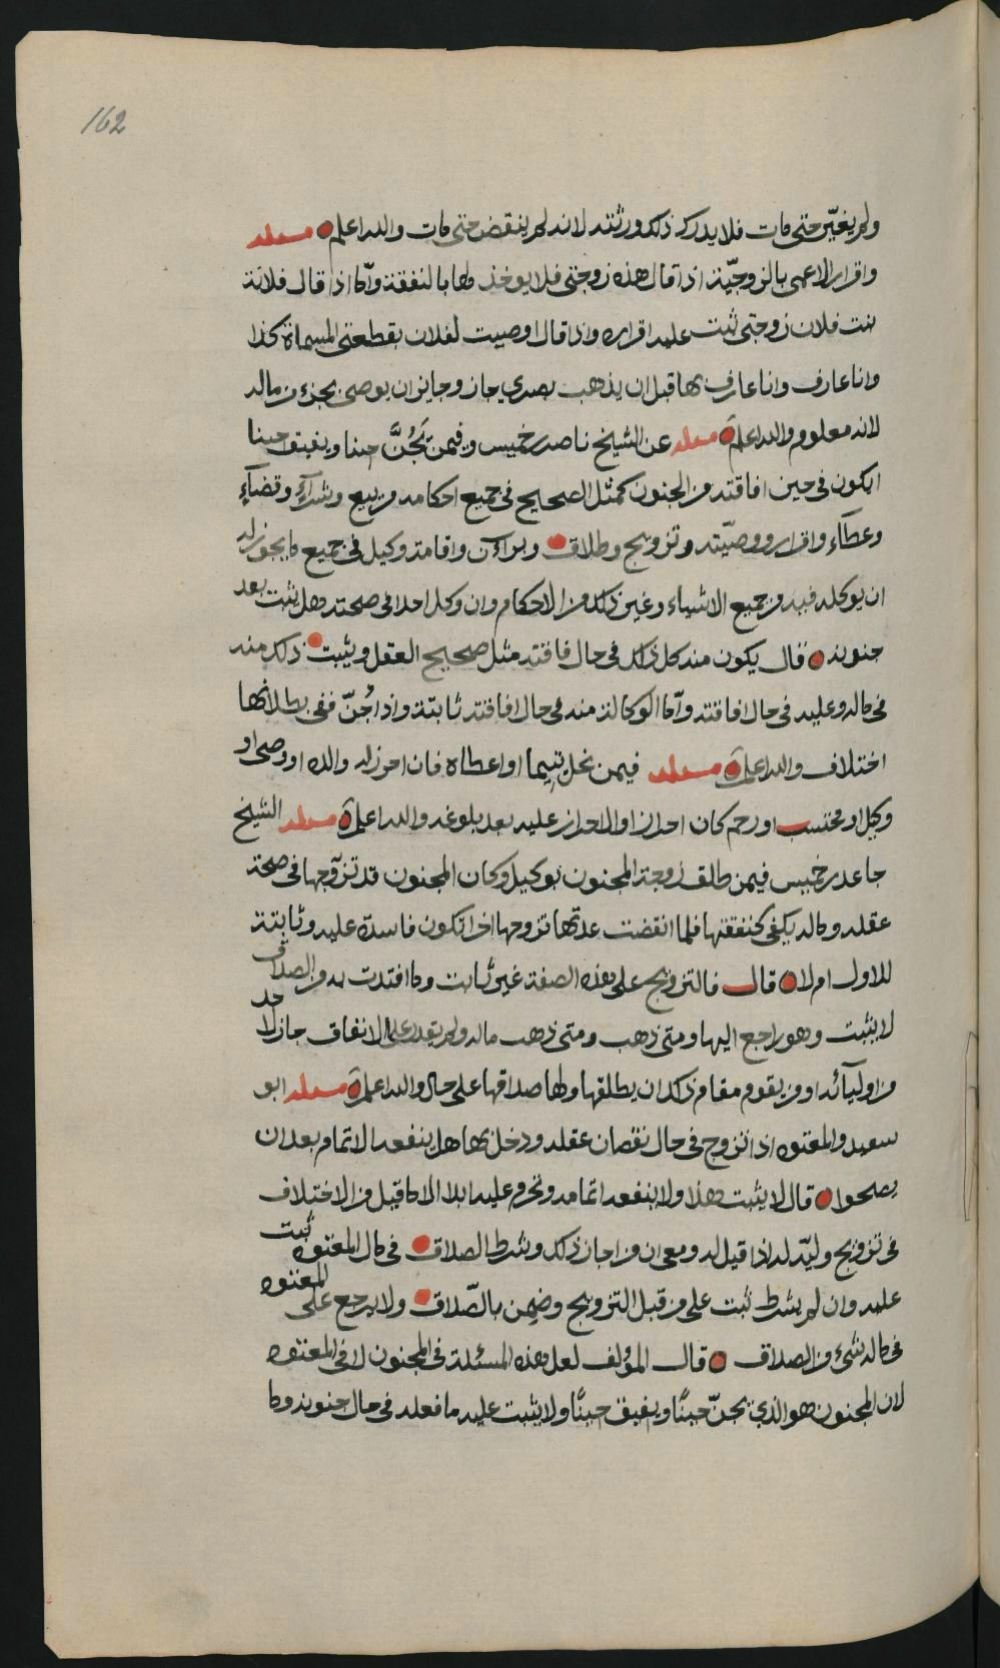 162
ولم يغيّر حتى مات فلا يدرك ذلك ورثته لانه لم ينقض حتى مات والله اعلم مسئلة
واقرار الاعمى بالزوجيّة اذا قال هذه زوجتى فلا يوخذ لها بالنفقة وأما اذا قال فلانة
بنت فلان زوجتى ثبت عليه اقراره واذا قال اوصيت لفلان بقطعتى المسماة كذا
وانا عارف وانا عارف بها قبل ان يذهب بصري جاز وجايز ان يوصى بجزء من ماله
لانه معلوم والله اعلم مسئلة عن الشيخ ناصر بن خميس وفيمن يَجُنَّ حينا ويفيق حينا
ايكون في حين افاقته من الجنون كمثل الصحيح في جميع احكامه من بيع وشرآءٍ وقضآءٍ
وعطآء واقرار ووصيّته وتزويج وطلاق وبرآن واقامة وكيل في جميع ما يجوز له
ان يوكله فيه من جميع الاشياء وغير ذلك من الاحكام وان وكل احدا في صحته هل يثبت بعد
جنونه قال يكون منه كل ذلك في حال افاقته مثل صحيح العقل ويثبت ذلك منه
في ماله وعليه في حال افاقته وأما الوكالة منه في حال افاقته ثابتة واذا جُنّ ففي بطلانها
اختلاف والله اعلم مسئلة فيمن نحل يتيما او اعطاه فان احرز له والده او وصى او
وكيل او محتسب او رحم كان احراز او الاحراز عليه بعد بلوغه والله اعلم مسئلة الشيخ
جاعد بن خميس فيمن طلق زوجة المجنون بوكيل وكان المجنون قد تزوّجها في صحة
عقله وماله يكفي كنفقتها فلما انقضت عدتها تزوجها اخر اتكون فاسدة عليه وثابتة
للاول ام لا قال فالتزويج على هذه الصفة غير ثابت وما افتدت به من الصداق
لا يثبت وهو راجع اليها ومتى ذهب ومتى ذهب ماله ولم يقدر على الانفاق جاز لاحد
من اوليآئه او من يقوم مقام ذلك ان يطلقها ولها صداقها على حال والله اعلم مسئلة ابو
سعيد والمعتوه اذا تزوج في حال نقصان عقله ودخل بها هل ينفعه الاتمام بعد ان
يصحوا قال لا يثبت هذا ولا ينفعه اتمامه وتحرم عليه ابدا الا ما قيل من الاختلاف
في تزويج وليّه له اذا قيل له ومعى ان من اجاز ذلك وشرط الصداق في مال المعتوه ثبت
عليه وان لم يشرط ثبت على من قبل التزويج وضمن بالصّداق ولا يرجع على المعتوه
في ماله بشيء من الصداق قال المؤلف لعل هذه المسئلة في المجنون لا في المعتوه
لان المجنون هو الذي يجنّ حينًا ويفيق حينًا ولا يثبت عليه ما فعله في حال جنونه وما